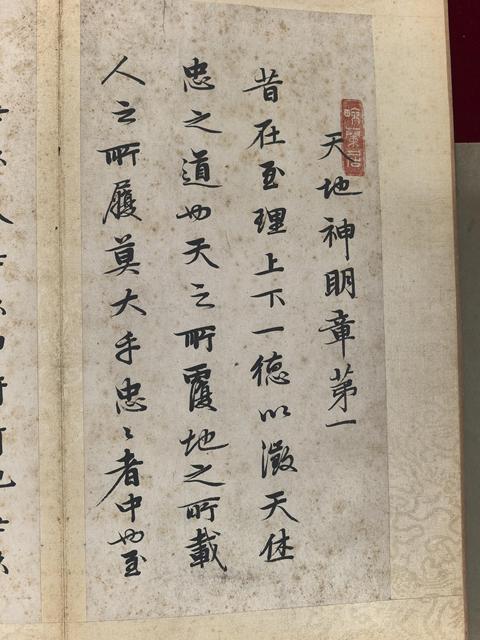 天地神明章第一
昔在至理上下一德以徵天休
忠之道也天之所覆地之所載
人之所履莫大乎忠〻者中也至